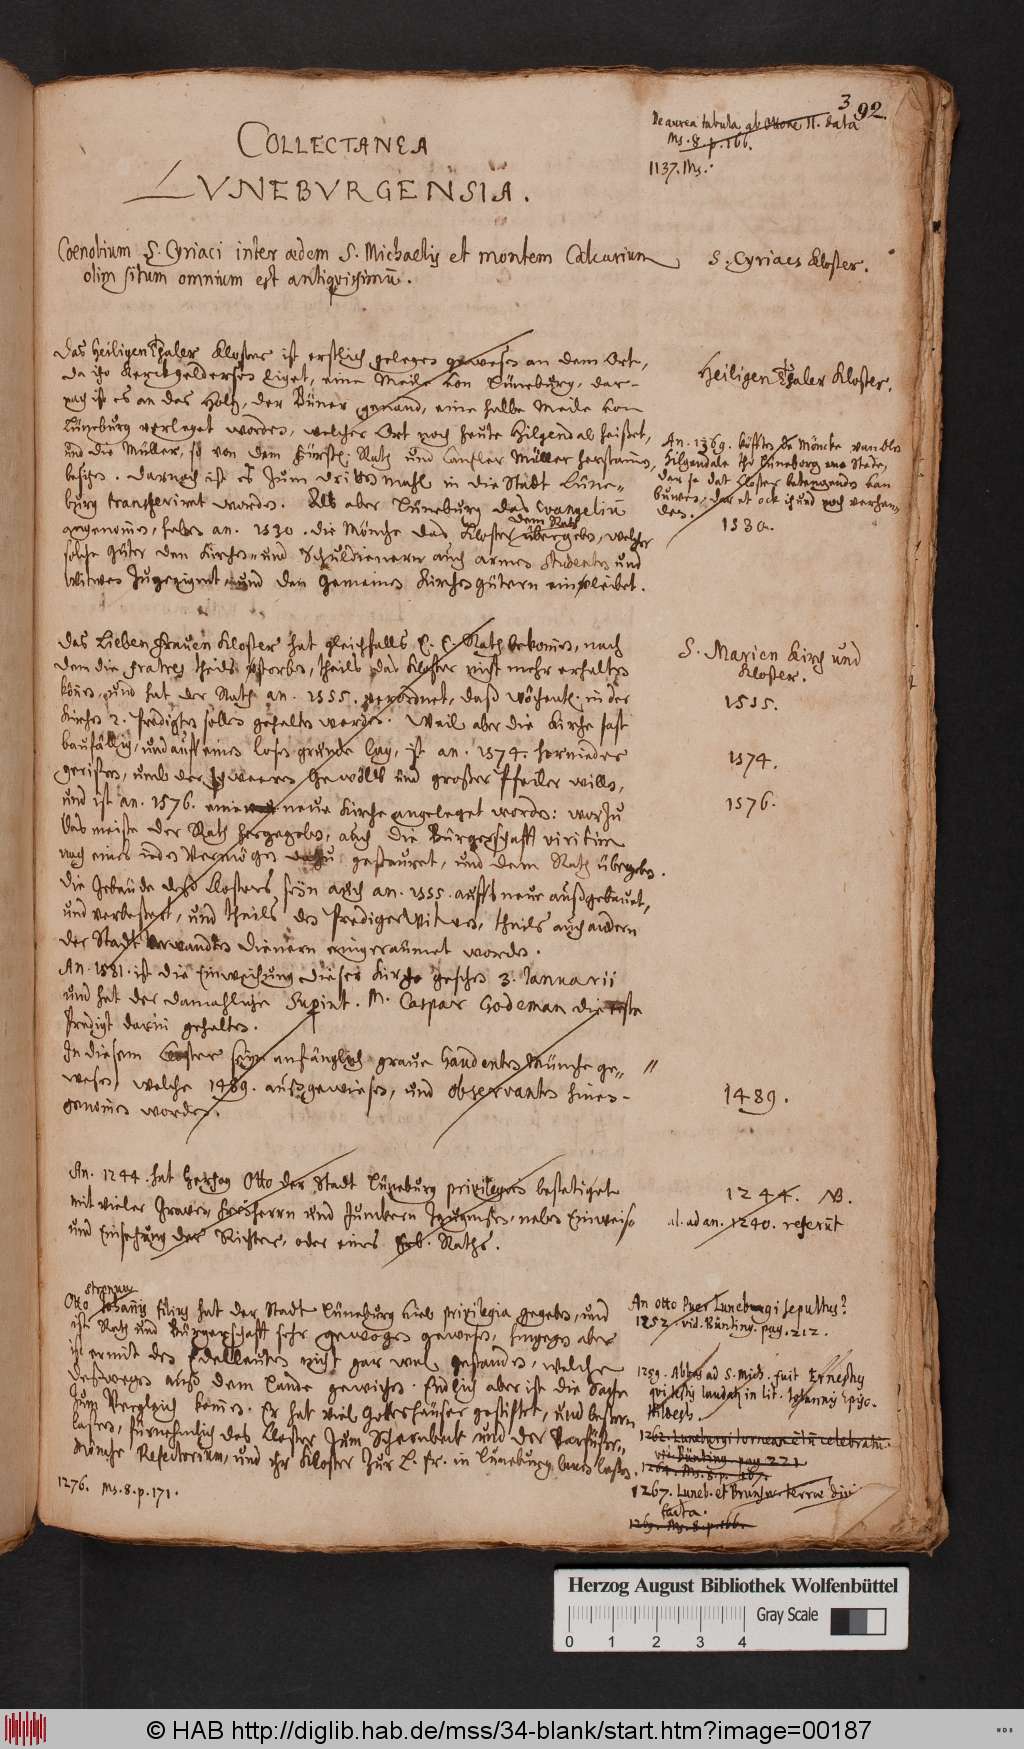 3 92.
De aurea tabula ab Ottone II. data
Ms. 8. p. 166.
1137. Ms.
COLLECTANEA
LVNEBVRGENSIA.
Coenobium S. Cyriaci inter ædem S. Michaelis et montem Calcarium
olim situm omnium est antiquissimū.
S. Cyriacs Kloster.
Das Heiligen Thaler Kloster ist erstlich gelegen gewesen an dem Ort,
da itzo Kerckgelderssen liget, eine Meile von Lüneburg, dar-
nach ist es an das Holtz, der Büner genand, eine halbe Meile von
Lüneburg verleget worden, welcher Ort noch heute Hilgendal heisset,
und die Müller, so von dem Fürstl. Rath und Cantzler Müller herstamen,
besitzen. Darnach ist es zum dritten mahl in die Stadt Lüne-
burg transferiret worden. Als aber Lüneburg das Evangeliū
angenomēn, haben an. 1530. die Mönche das Kloster dem Rath übergeben, welcher
solche Güter den Kirchen- und Schuldienern auch armen Studenten und
Witwen zugeeignet, und den Gemeinen Kirchen gütern einverleibet.
Heiligen Thaler Kloster.
An. 1369. köfften de Möncke van dle
Hilgendale tho Lüneborg eine Stede,
dar se dat Kloster
buweden, dar et ock ist und noch vorhan-
den.
1530.
Das Lieben Frauen Kloster hat gleichfalls E. E. Rath bekomēn, nach
dem die fratres theils gestorben, theils das Kloster nicht mehr erhalten
könen, und hat der Rath an. 1555. verordnet, dass wöchentl. in der
Kirchen 2. Predigten sollen gehalten werden. Weil aber die Kirche fast
baufällig, und auff einen losen grunde lag, ist an. 1574. hernieder
gerissen, umb der schweeren Gewölb und grossen Pfeiler willen,
und ist an. 1576. eine neue Kirche angeleget worden: worzu
das meiste der Rath hergegeben, auch die Bürgerschafft viritim
nach eines jeden Vermögen dazu gesteuret, und dem Rath übergeben.
Die Gebäude dess Closters seyn auch an. 1555. auffs neue aussgebauet,
und verbessert, und theils den Prediger Witwen, theils auch andern
der Stadt verwandten Dienern eingeraumet worden.
An. 1581. ist die Einweihung dieser Kirche geschehen 3. Ianuarii
und hat der damahlige Supint. M. Caspar Godeman die erste
Predigt darin gehalten.
In diesem Closter seyn anfänglich graue Münche ge-
wesen, welche 1489. aussgewiesen, und observanten hinein-
genomēn worden.
S. Marien Kirch und
Kloster.
1555.
1574.
1576.
1489.
An. 1244. hat Hertzog Otto der Stadt Lüneburg privilegien bestetiget
mit vieler Graven, Freyherrn und Junckern Zeugnissen, neben Einweisu
und Einsetzung der Richter, oder eines Erb. Raths.
1244. NB.
al. ad an. 1240. referūt
Otto strenuus Johannis filius hat der Stadt Lüneburg viel privilegia gegeben, und
ist Rath und Bürgerschafft sehr gewogen gewesen, hingegen aber
ist er mit den Edelleuten nicht gar wol gestanden, welche
desswegen auss dem Lande gewichen. Endlich aber ist die Sache
zum Vergleich komen. Er hat viel Gotteshäuser gestifftet, und bessern
lassen, fürnehmlich das Closter zum Scharnbeck und der Barfüsser-
Mönche Refectorium, und ihr Kloster zur L. Fr. in Lüneburg bauen lassen.
1276. Ms. 8. p. 171.
An Otto Puer Luneburgi sepultus?
1252. vid. Bünting. pag. 212.
1259. Abbas ad S. Mich. fuit Ernestus
qui testis laudatur in lit. Iohannis Episc.
Hildesh.
1262. Luneburgi torneamētū celebratū.
vid. Bünting. pag 221
1264. Ms. 8. p. 167.
1267. Luneb. et Brunsw. terræ divi
facta.
1269. Ms. 8. p. 166.
Herzog August Bibliothek Wolfenbüttel
Gray Scale
0 1 2 3 4
© HAB http://diglib.hab.de/mss/34-blank/start.htm?image=00187